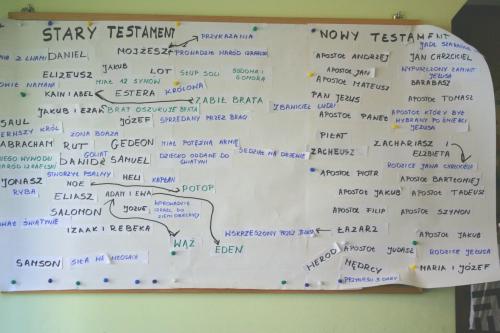 STARY TESTAMENT
NOWY TESTAMENT
PRZYKAZANIA
MOJŻESZ
PROWADZIŁ NARÓD IZRAELSKI
Z LWAMI
DANIEL
JAKUB
LOT
SŁUP SOLI
SODOMA I GOMORA
ELIZEUSZ
MIAŁ 12 SYNÓW
KAIN I ABEL
ESTERA
KRÓLOWA
ZABIŁ BRATA
JAKUB I EZAW
BRAT OSZUKUJE BRATA
ZBAWICIEL LUDZI
SAUL
JÓZEF
SPRZEDANY PRZEZ BRACI
PIERWSZY KRÓL
ŻONA BOOZA
ABRACHAM
RUT
GEDEON
MIAŁ POTĘŻNĄ ARMIĘ
SIEDZIAŁ NA DRZEWIE
GOLIAT
DAWID
SAMUEL
DZIECKO ODDANE DO ŚWIĄTYNI
STWORZYŁ PSALMY
JONASZ
HELI
KAPŁAN
RYBA
NOE
POTOP
ELIASZ
ADAM I EWA
SALOMON
JOZUE
WPROWADZIŁ IZRAEL DO ZIEMI OBIECANEJ
IZAAK I REBEKA
WĄŻ
EDEN
SAMSON
SIŁA WE WŁOSACH
APOSTOŁ ANDRZEJ
JADŁ SZARAŃCZĘ
JAN CHRZCICIEL
APOSTOŁ JAN
WYPUSZCZONY ZAMIAST JEZUSA
APOSTOŁ MATEUSZ
BARABASZ
PAN JEZUS
APOSTOŁ TOMASZ
APOSTOŁ PAWEŁ
APOSTOŁ KTÓRY BYŁ WYBRANY PO ŚMIERCI JEZUSA
PIŁAT
ZACHARIASZ I ELŻBIETA
ZACHEUSZ
RODZICE JANA CHRZCICIELA
APOSTOŁ PIOTR
APOSTOŁ BARTŁOMIEJ
APOSTOŁ JAKUB
APOSTOŁ TADEUSZ
APOSTOŁ FILIP
APOSTOŁ SZYMON
WSKRZESZONY PRZEZ JEZUSA
ŁAZARZ
APOSTOŁ JAKUB
HEROD
APOSTOŁ JUDASZ
RODZICE JEZUSA
MĘDRCY
MARIA I JÓZEF
PRZYNIEŚLI 3 DARY